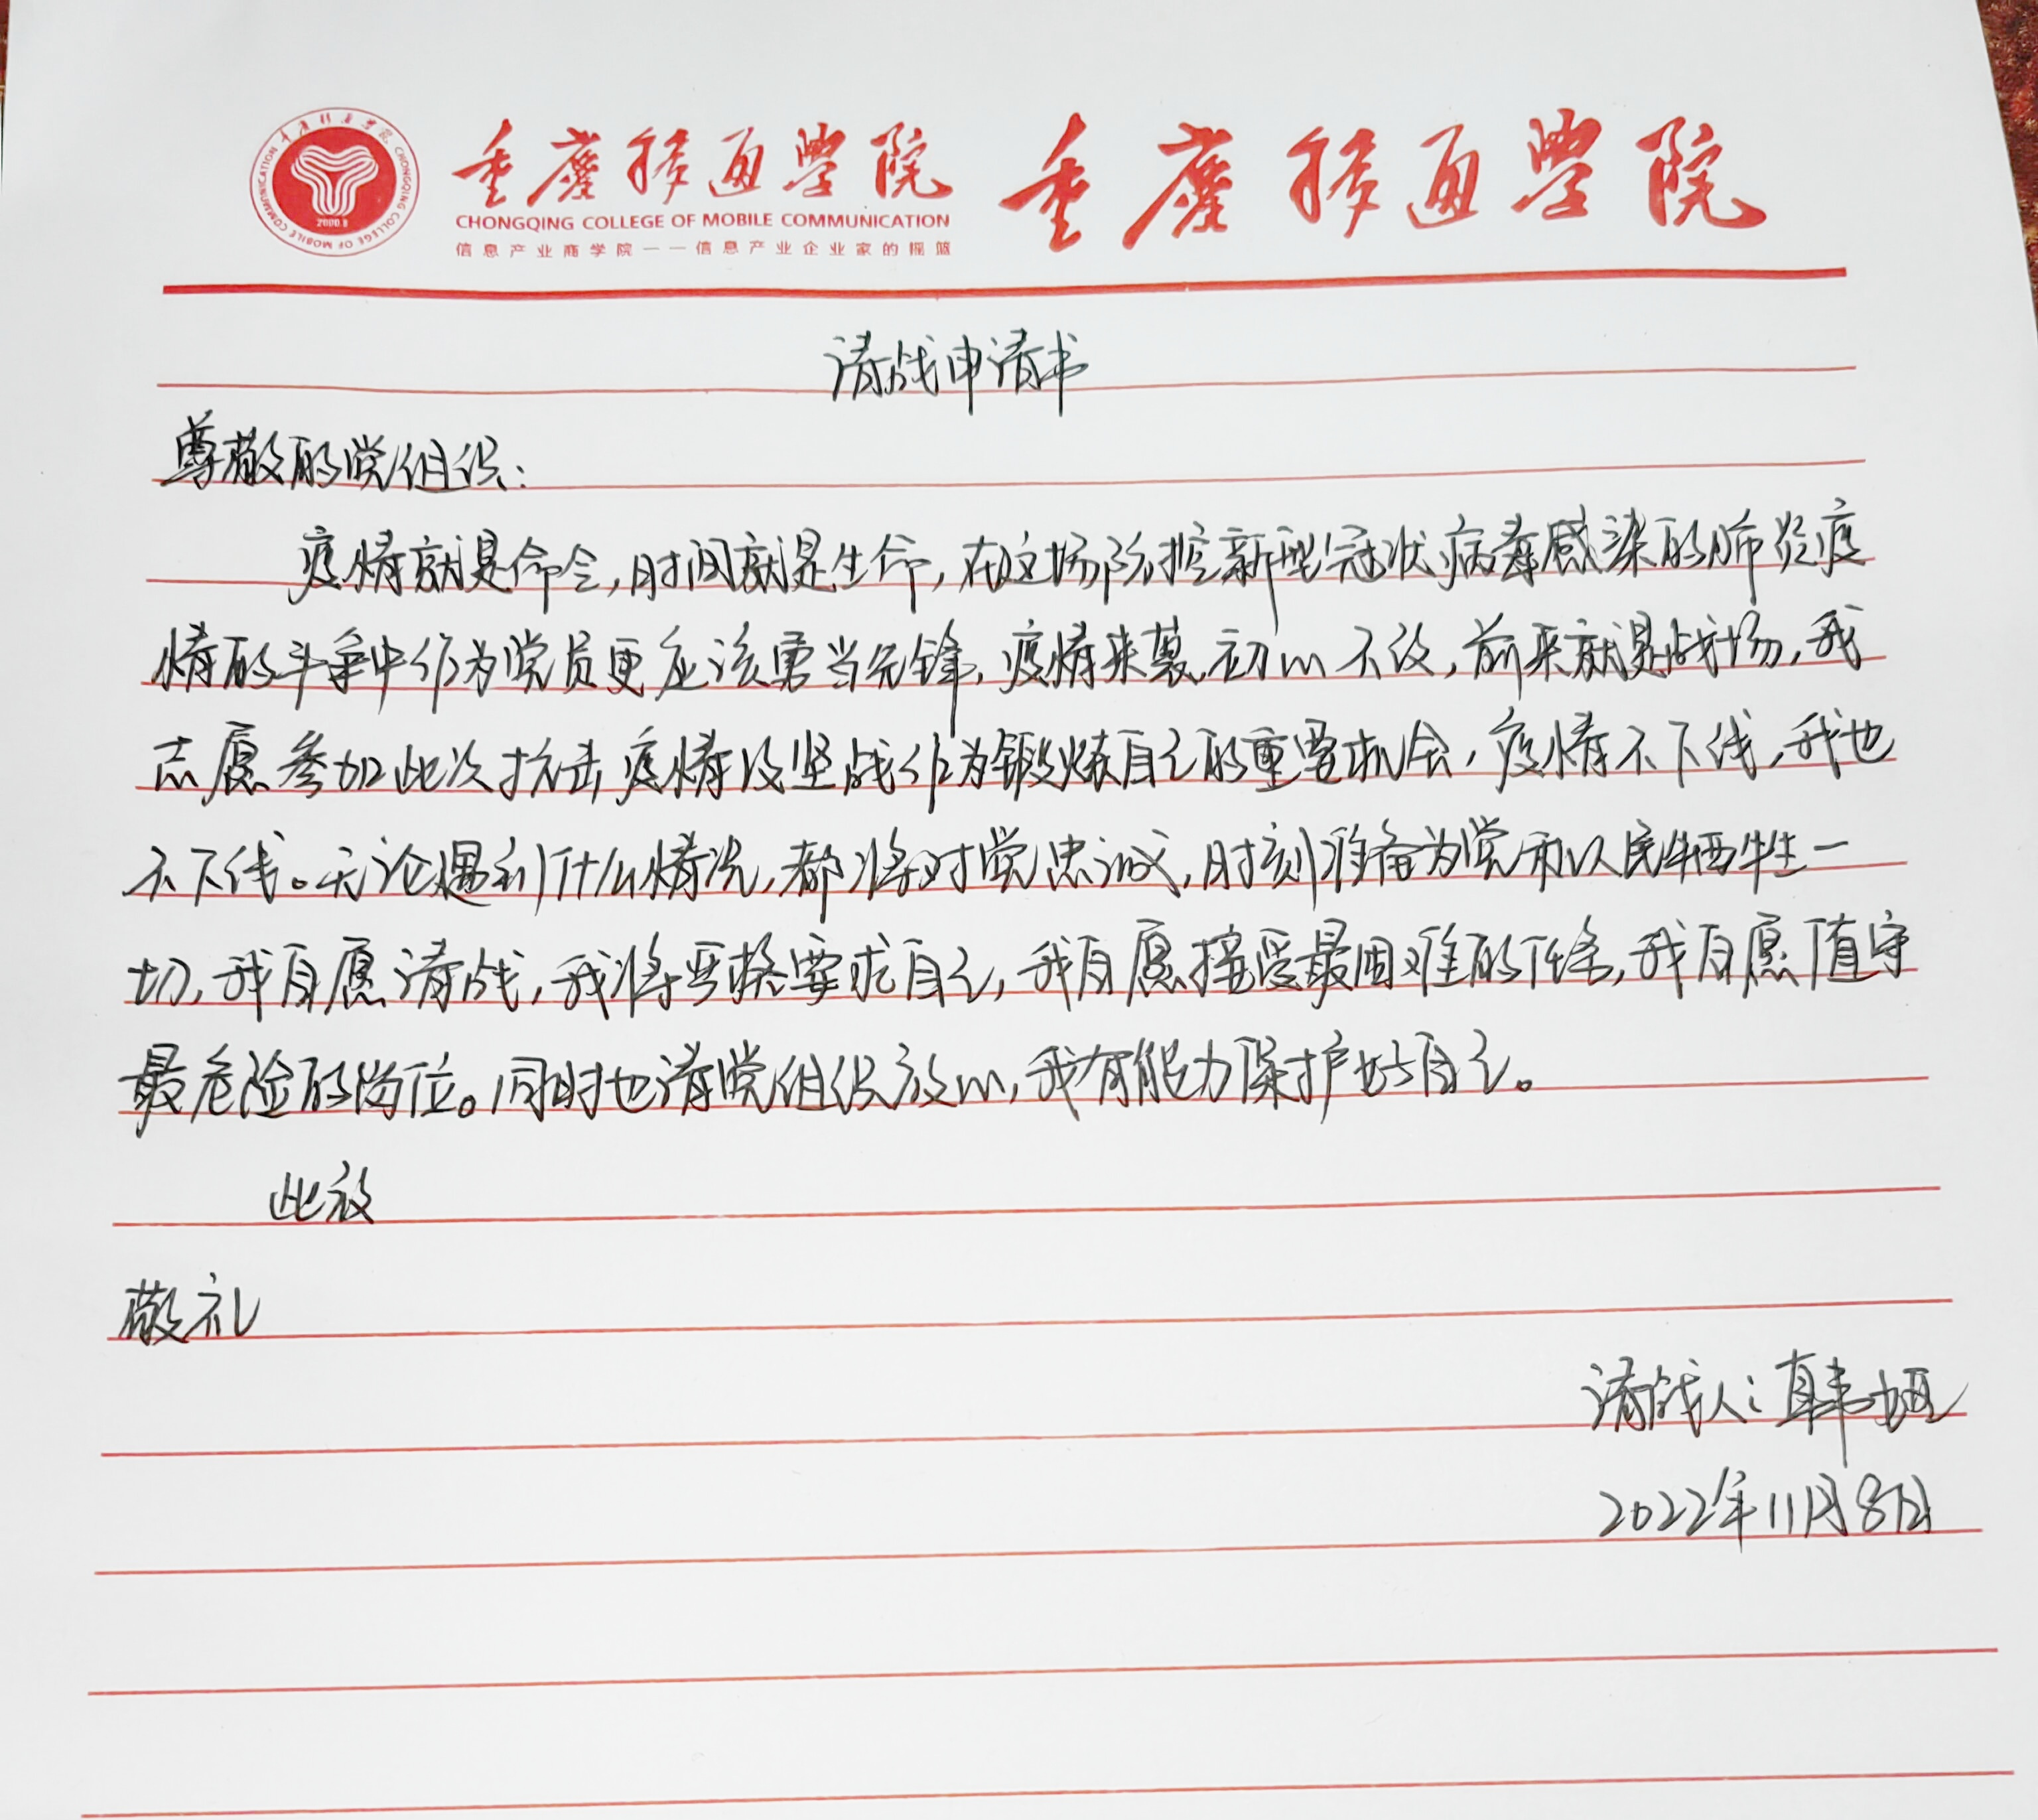 重庆移通学院 重庆移通学院
CHONGQING COLLEGE OF MOBILE COMMUNICATION
信息产业商学院——信息产业企业家的摇篮
重庆移通学院
CHONGQING COLLEGE OF MOBILE COMMUNICATION
2000.8
请战申请书
尊敬的党组织:
疫情就是命令,时间就是生命,在这场防控新型冠状病毒感染的肺炎疫
情的斗争中作为党员更应该勇当先锋,疫情来袭,初心不改,前来就是战场,我
志愿参加此次抗击疫情攻坚战作为锻炼自己的重要机会,疫情不下线,我也
不下线。无论遇到什么情况,都将对党忠诚,时刻准备为党和人民牺牲一
切,我自愿请战,我将严格要求自己,我自愿接受最困难的任务,我自愿值守
最危险的岗位。同时也请党组织放心,我有能力保护好自己。
此致
敬礼
请战人:韩娅
2022年11月8日